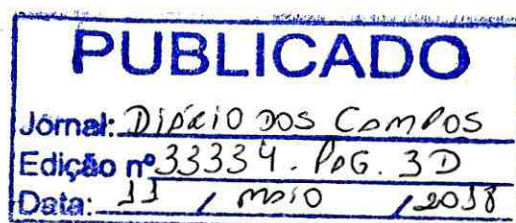 PUBLICADO
Jornal: DIÁRIO DOS CAMPOS
Edição nº 33334. PAG. 3D
Data: 11 / MAIO / 2018